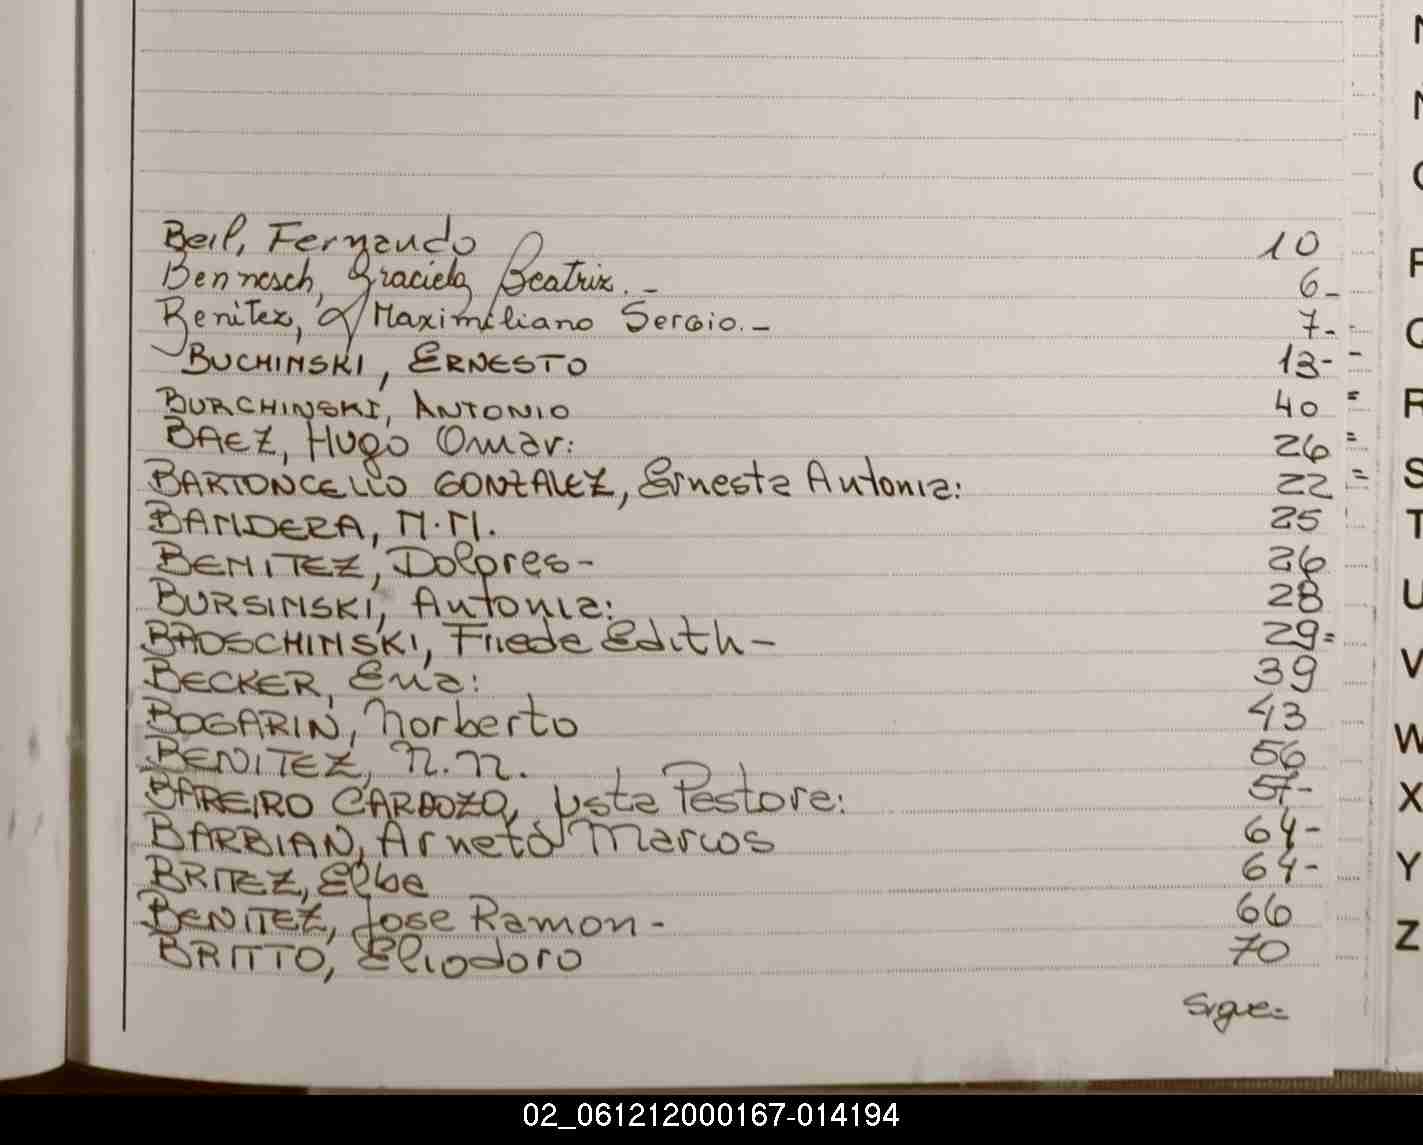 Beil, Fernando 10
Bennesch, Graciela Beatriz.- 6-
Benitez, Maximiliano Sergio.- 7-
BUCHINSKI, ERNESTO 13-
BURCHINSKI, ANTONIO 40
BAEZ, Hugo Omar: 26
BARTONCELLO GONZALEZ, Ernesta Antonia: 22
BANDERA, N.N. 25
BENITEZ, Dolores- 26
BURSINSKI, Antonia: 28
BROSCHINSKI, Friede Edith- 29=
BECKER, Ema: 39
BOGARIN, Norberto 43
BENITEZ, N.N. 56
BAREIRO CARDOZO, Justa Pastora: 57-
BARBIAN, Arneto Marcos 64-
BRITEZ, Elba 64-
BENITEZ, Jose Ramon- 66
BRITTO, Eliodoro 70
Sigue=
N
N
R
S
T
U
V
W
X
Y
Z
02_061212000167-014194